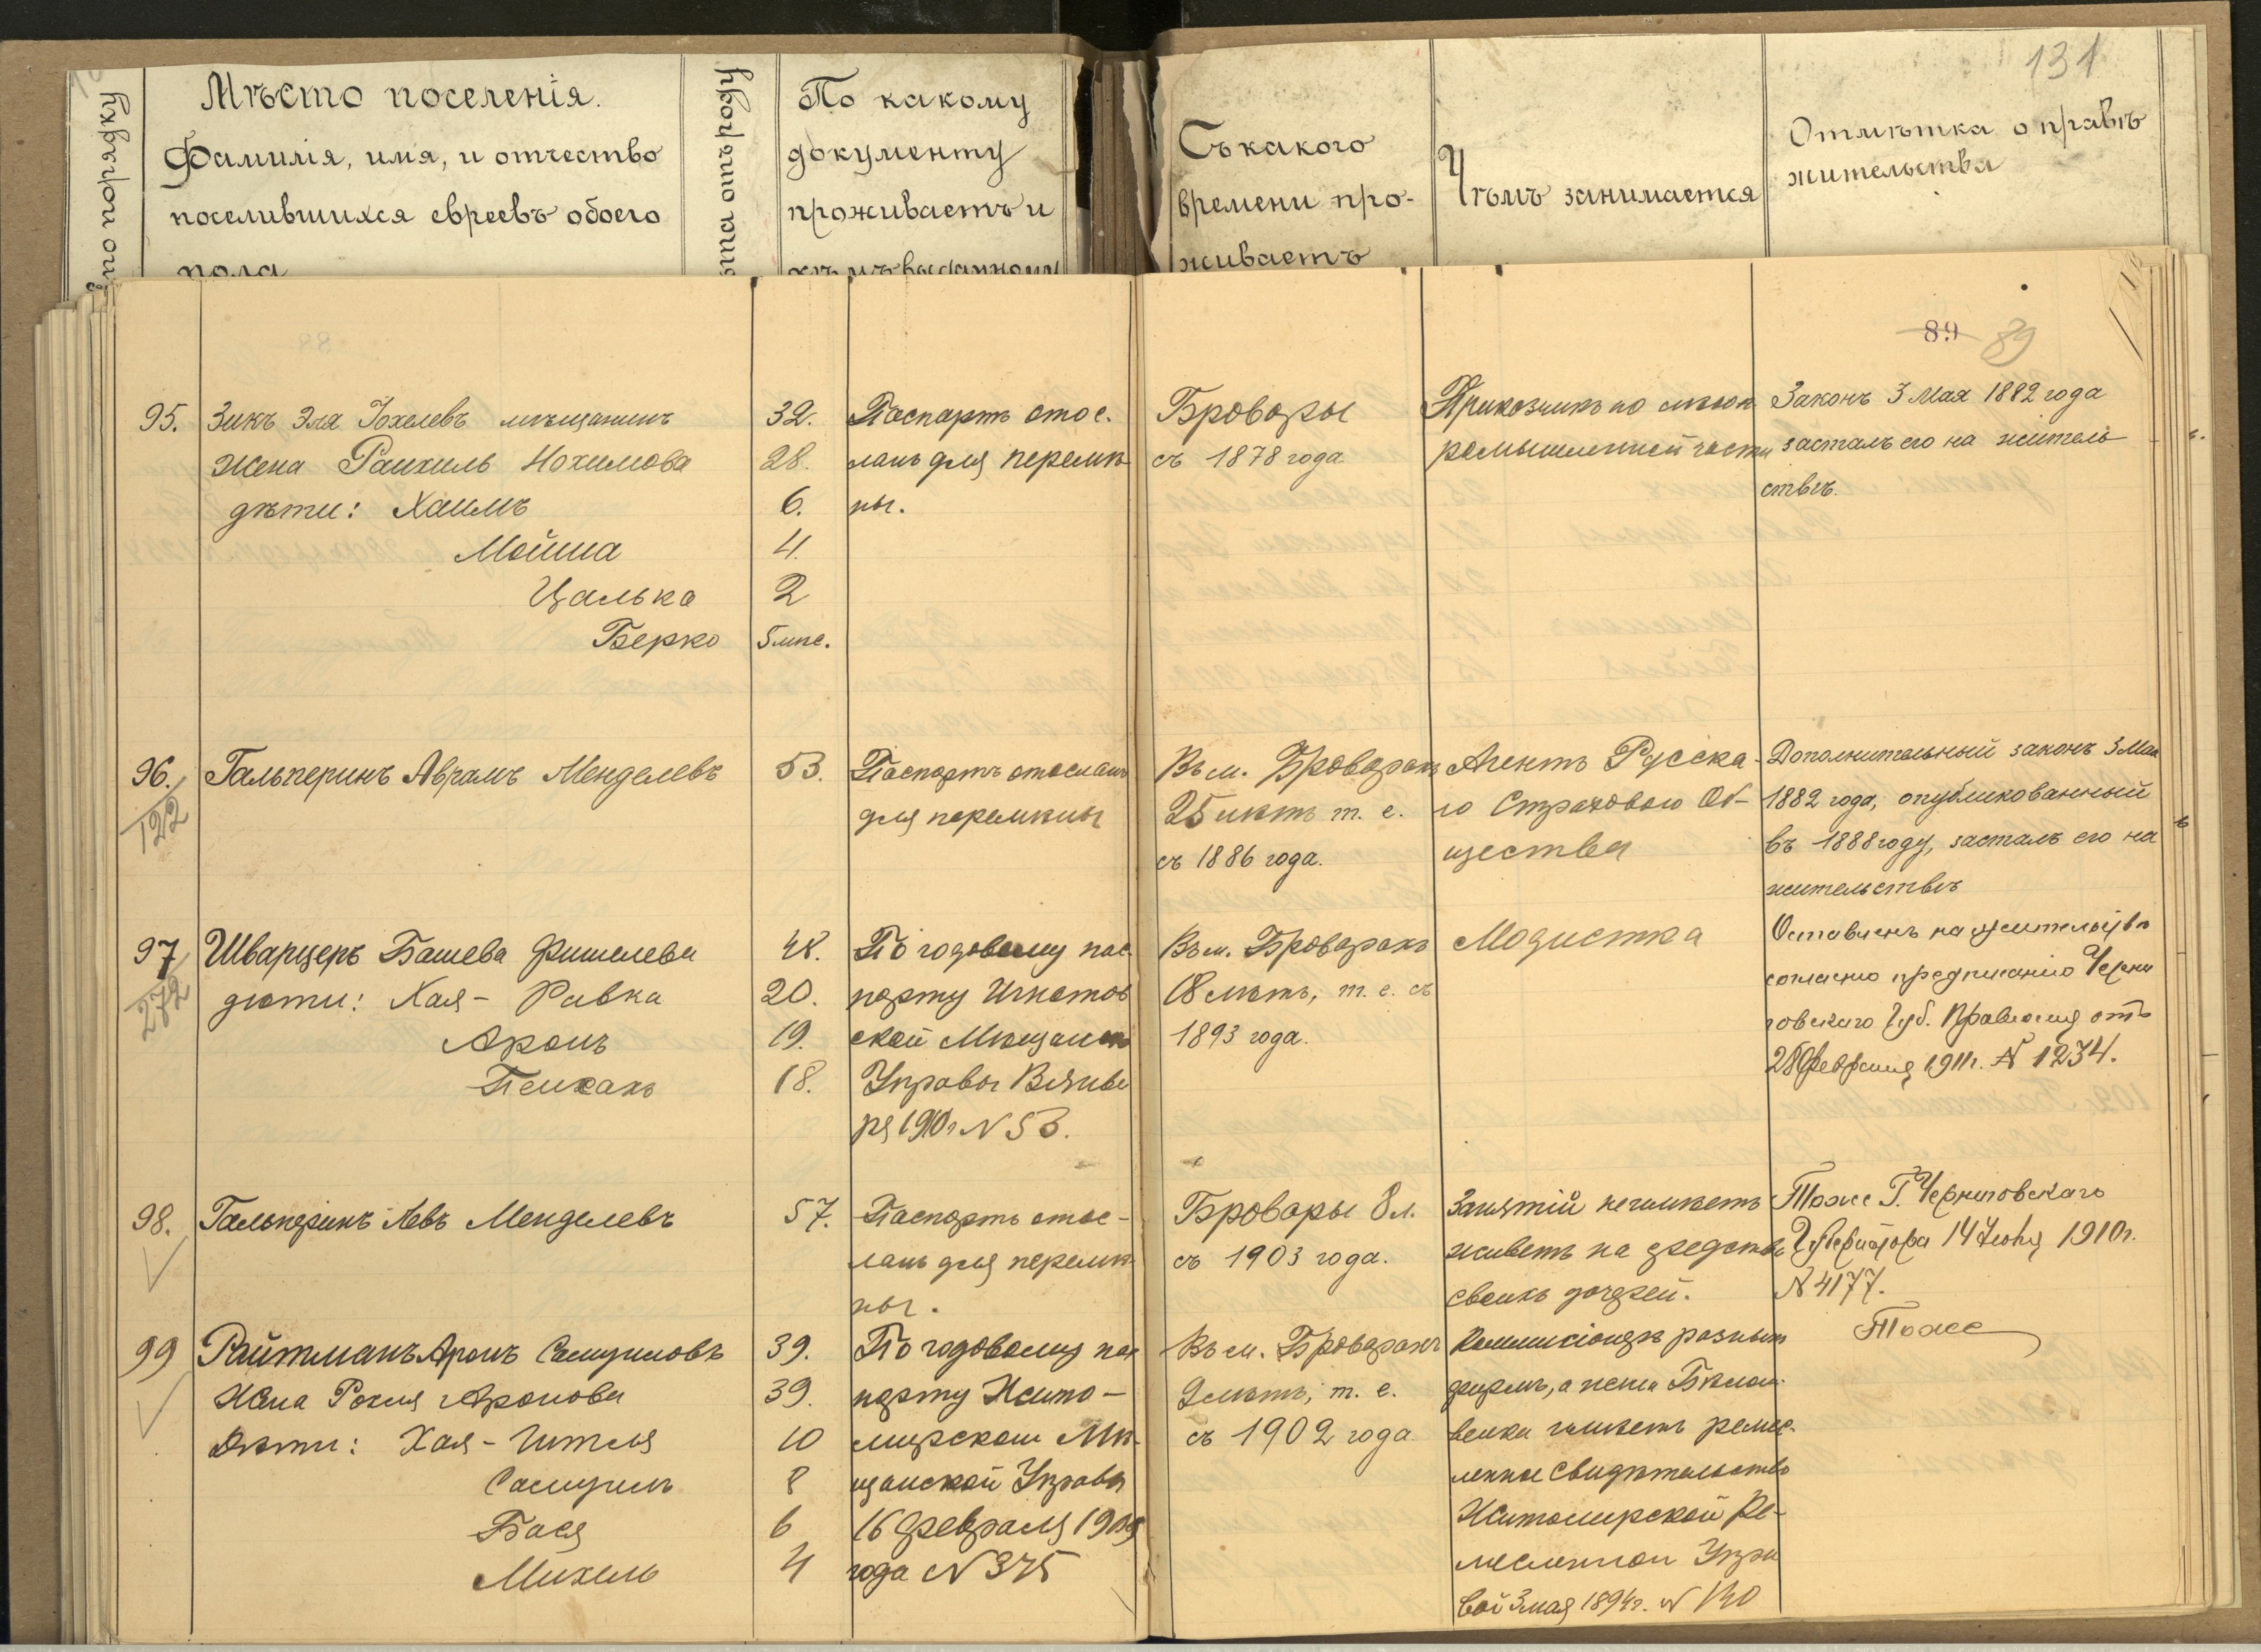 131
№ по порядку
Мѣсто поселенія.
Фамилія, имя, и отчество
поселившихся евреевъ обоего
пола
лѣта отъ роду
По какому
документу
проживаетъ и
кѣмъ выданному
Съ какого
времени про-
живаетъ
Чѣмъ занимается
Отмѣтка о правѣ
жительства
89 89
95.
Зикъ Эля Іохелевъ мѣщанинъ
32.
Жена Раихиль Нохимова
28.
дѣти: Хаимъ
6.
Мойша
4.
Цалька
2
Берко
5 мѣс.
Паспортъ отос.
ланъ для перемѣ
ны.
Бровары
съ 1878 года
Приказчикъ по
ромышленной части
Законъ 3 Мая 1882 года
засталъ его на житель
ствѣ.
96.
122
Гальперинъ Аврамъ Менделевъ
53.
Паспортъ отосланъ
для перемѣны
Въ м. Броварахъ
25 лѣтъ т. е.
съ 1886 года.
Агентъ Русска-
го Страховаго Об-
щества
Дополнительный законъ 3 Мая
1882 года, опубликованный
въ 1888 году, засталъ его на
жительствѣ
97
272
Шварцеръ Башева Фишелева
48.
дѣти: Хая - Ривка
20.
Аронъ
19.
Пейсахъ
18.
По годовому пас
порту Игнатов
ской Мѣщанск
Управы Январ
ря 1910 г № 53.
Въ м. Броварахъ
18 лѣтъ, т. е. съ
1893 года.
Модистка
Оставленъ на жительство
согласно предписанію Черни
говскаго Губ. Правленія отъ
28 Февраля 1911 г. № 1234.
98.
Гальперинъ Левъ Менделевъ
57.
Паспортъ отос-
ланъ для перемѣ
ны.
Бровары 8 л.
съ 1903 года.
Занятій не имѣетъ
живетъ на средства
своихъ дочерей.
Тоже Г. Черниговскаго
Губернатора 14 Іюня 1910 г.
№ 4177.
99
Райтманъ Аронъ Самуиловъ
39.
Жена Рохля Аронова
39.
Дѣти: Хая - Гитля
10
Самуилъ
8
Бася
6
Михель
4
По годовому пас
порту Жито-
мирской Мѣ-
щанской Управы
16 февраля 1909
года № 375
Въ м. Броварахъ
9 лѣтъ, т. е.
съ 1902 года
Коммисіонеръ разныхъ
фирмъ, а жена Бѣлош.
вейка имѣетъ ремес-
ленное свидѣтельство
Житомирской Ре-
месленной Упра
вой 3 мая 1894 г. № 140
Тоже